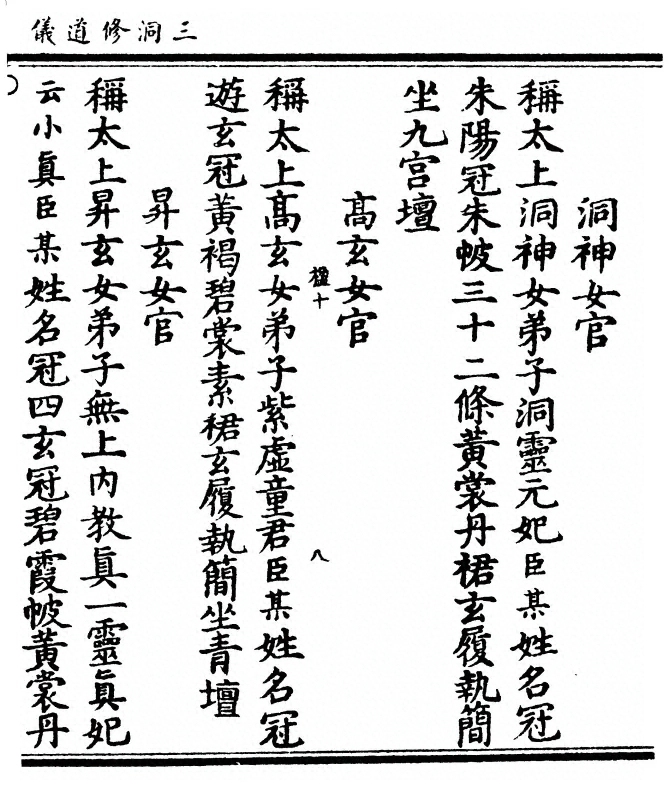 三洞修道儀
洞神女官
稱太上洞神女弟子洞靈元妃臣某姓名冠
朱陽冠朱帔三十二條黃裳丹裙玄履執簡
坐九宮壇
高玄女官
楹十
八
稱太上高玄女弟子紫虛童君臣某姓名冠
遊玄冠黃褐碧裳素裙玄履執簡坐青壇
昇玄女官
稱太上昇玄女弟子無上內教眞一靈眞妃
云小眞臣某姓名冠四玄冠碧霞帔黃裳丹